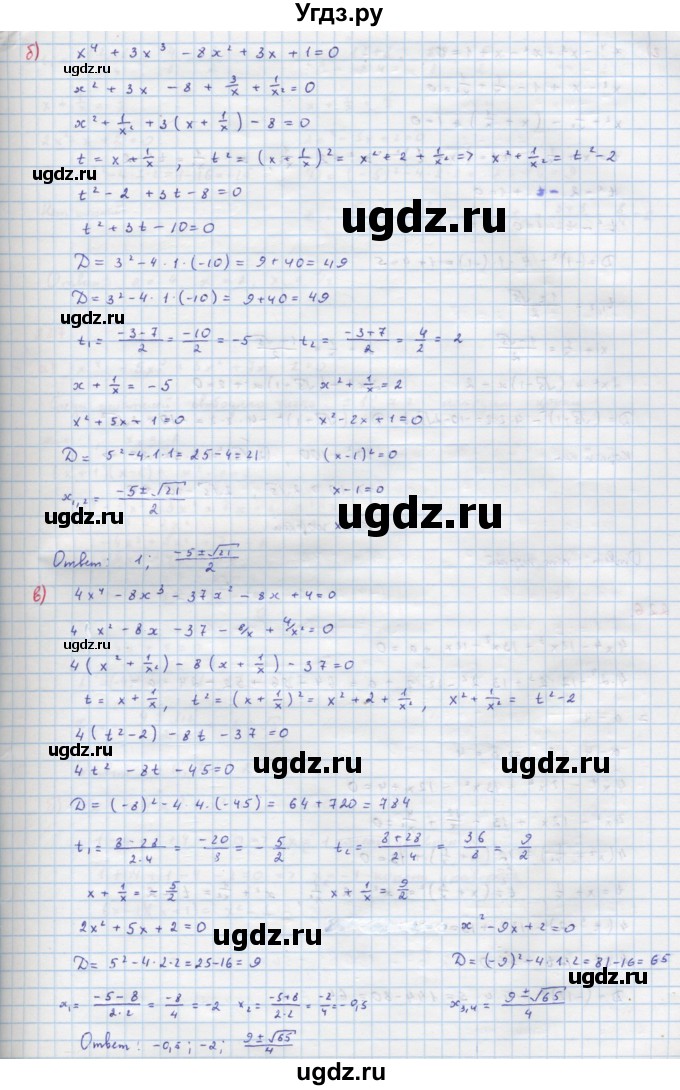 Угдз.ру
б) x⁴ + 3x³ - 8x² + 3x + 1 = 0
ugdz.ru
x² + 3x - 8 + 3/x + 1/x² = 0
x² + 1/x² + 3(x + 1/x) - 8 = 0
t = x + 1/x , t² = (x + 1/x)² = x² + 2 + 1/x² => x² + 1/x² = t² - 2
ugdz.ru
t² - 2 + 3t - 8 = 0
ugdz.ru
t² + 3t - 10 = 0
D = 3² - 4 · 1 · (-10) = 9 + 40 = 49
D = 3² - 4 · 1 · (-10) = 9 + 40 = 49
ugdz.ru
t₁ = (-3-7)/2 = -10/2 = -5 t₂ = (-3+7)/2 = 4/2 = 2
ugdz.ru
x + 1/x = -5 x² + 1/x = 2
x² + 5x + 1 = 0 x² - 2x + 1 = 0
ugdz.ru
D = 5² - 4·1·1 = 25 - 4 = 21 (x-1)² = 0
x₁,₂ = (-5 ± √21)/2 x - 1 = 0
ugdz.ru ugdz.ru
x
Ответ: 1; (-5 ± √21)/2
в) 4x⁴ - 8x³ - 37x² - 8x + 4 = 0
ugdz.ru
4 x² - 8x - 37 - 8/x + 4/x² = 0
ugdz.ru
4(x² + 1/x²) - 8(x + 1/x) - 37 = 0
t = x + 1/x, t² = (x + 1/x)² = x² + 2 + 1/x², x² + 1/x² = t² - 2
4(t² - 2) - 8t - 37 = 0
ugdz.ru
4t² - 8t - 45 = 0
ugdz.ru ugdz.ru
D = (-8)² - 4 · 4 · (-45) = 64 + 720 = 784
t₁ = (8-28)/(2·4) = -20/8 = -5/2 t₂ = (8+28)/(2·4) = 36/8 = 9/2
ugdz.ru
x + 1/x = -5/2 x + 1/x = 9/2
2x² + 5x + 2 = 0 x² - 9x + 2 = 0
ugdz.ru ugdz.ru
D = 5² - 4·2·2 = 25 - 16 = 9 D = (-9)² - 4 · 1 · 2 = 81 - 16 = 65
ugdz.ru
x₁ = (-5-8)/(2·2) = -8/4 = -2 x₂ = (-5+8)/(2·2) = -2/4 = -0,5 x₃,₄ = (9 ± √65)/4
ugdz.ru
Ответ: -0,5; -2; (9 ± √65)/4
ugdz.ru